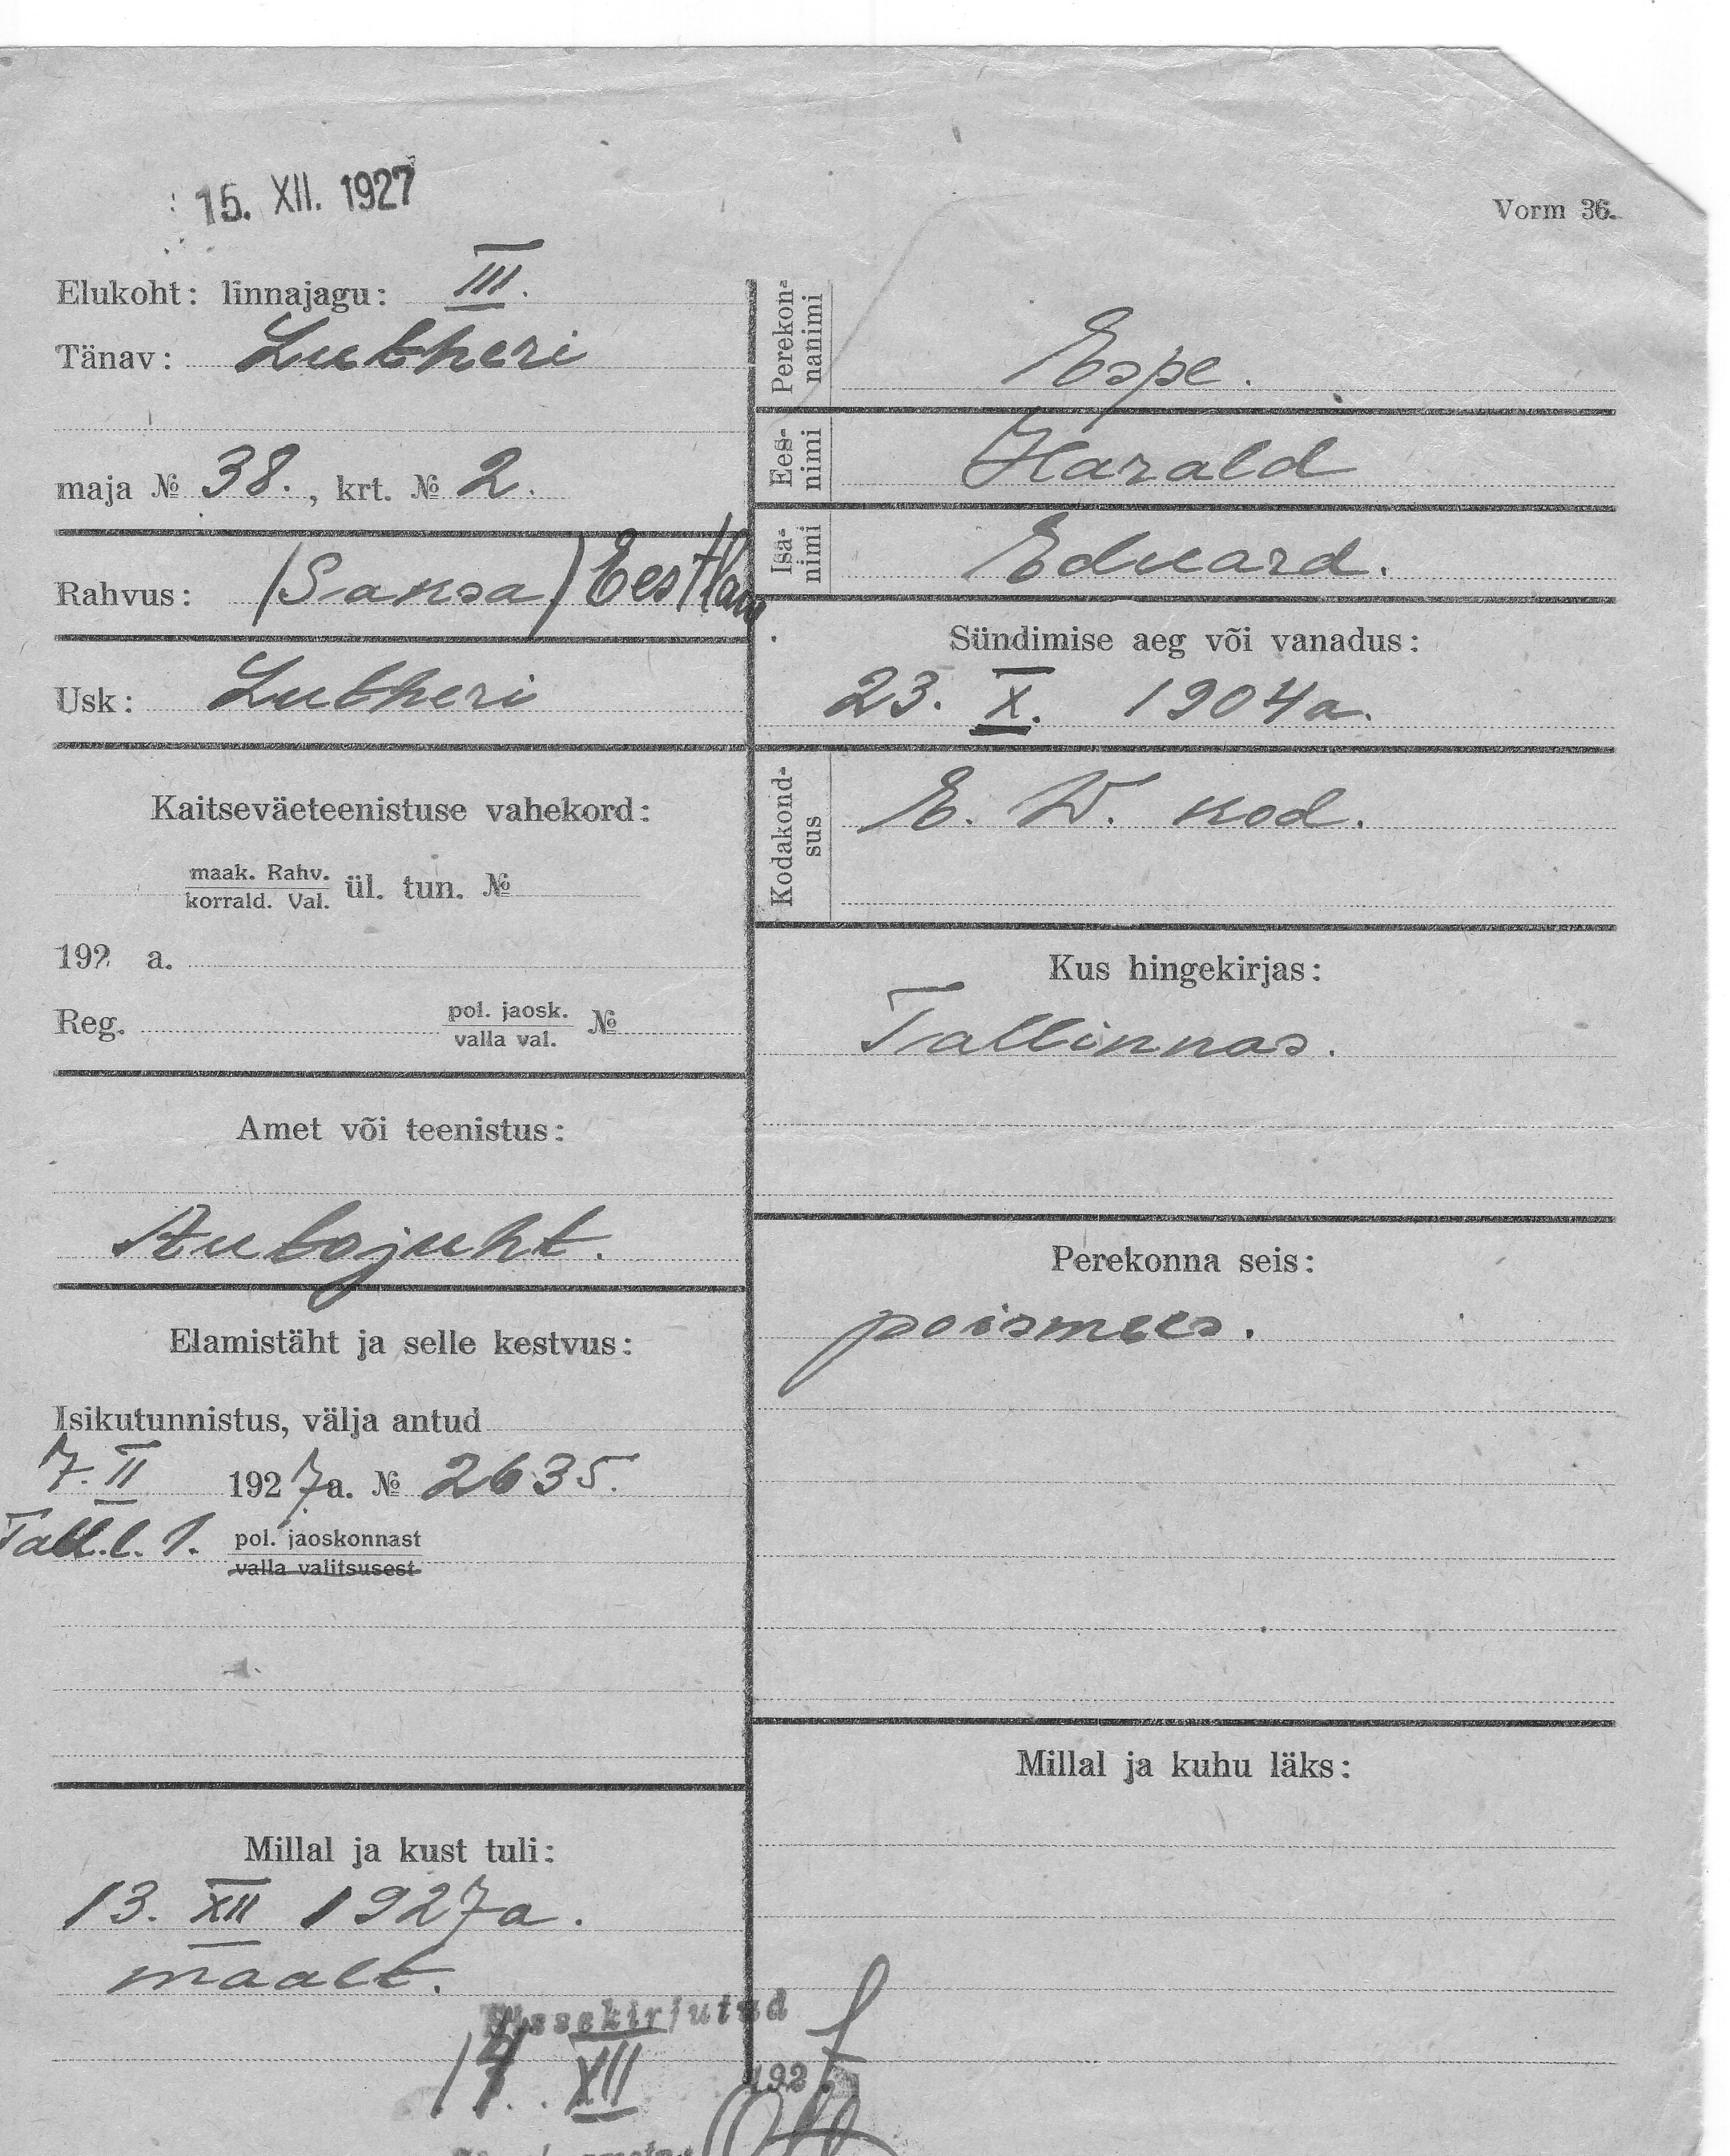 15. XII. 1927
Vorm 36.
Elukoht: linnajagu: III.
Tänav: Lutheri
maja № 38., krt. № 2.
Rahvus: (Saksa) Eestlane
Usk: Lutheri
Kaitseväeteenistuse vahekord:
maak. Rahv.
korrald. Val. ül. tun. №
192 a.
Reg. pol. jaosk.
valla val. №
Amet või teenistus:
Autojuht.
Elamistäht ja selle kestvus:
Isikutunnistus, välja antud
7. II 1927a. № 2635.
Tall. l. 1. pol. jaoskonnast
valla valitsusest
Millal ja kust tuli:
13. XII 1927a.
maalt.
Perekon-
nanimi Espe.
Ees-
nimi Harald
Isa-
nimi Eduard.
Sündimise aeg või vanadus:
23. X. 1904a.
Kodakond-
sus E. W. kod.
Kus hingekirjas:
Tallinnas.
Perekonna seis:
poismees.
Millal ja kuhu läks:
Sissekirjutud
14. XII 1927